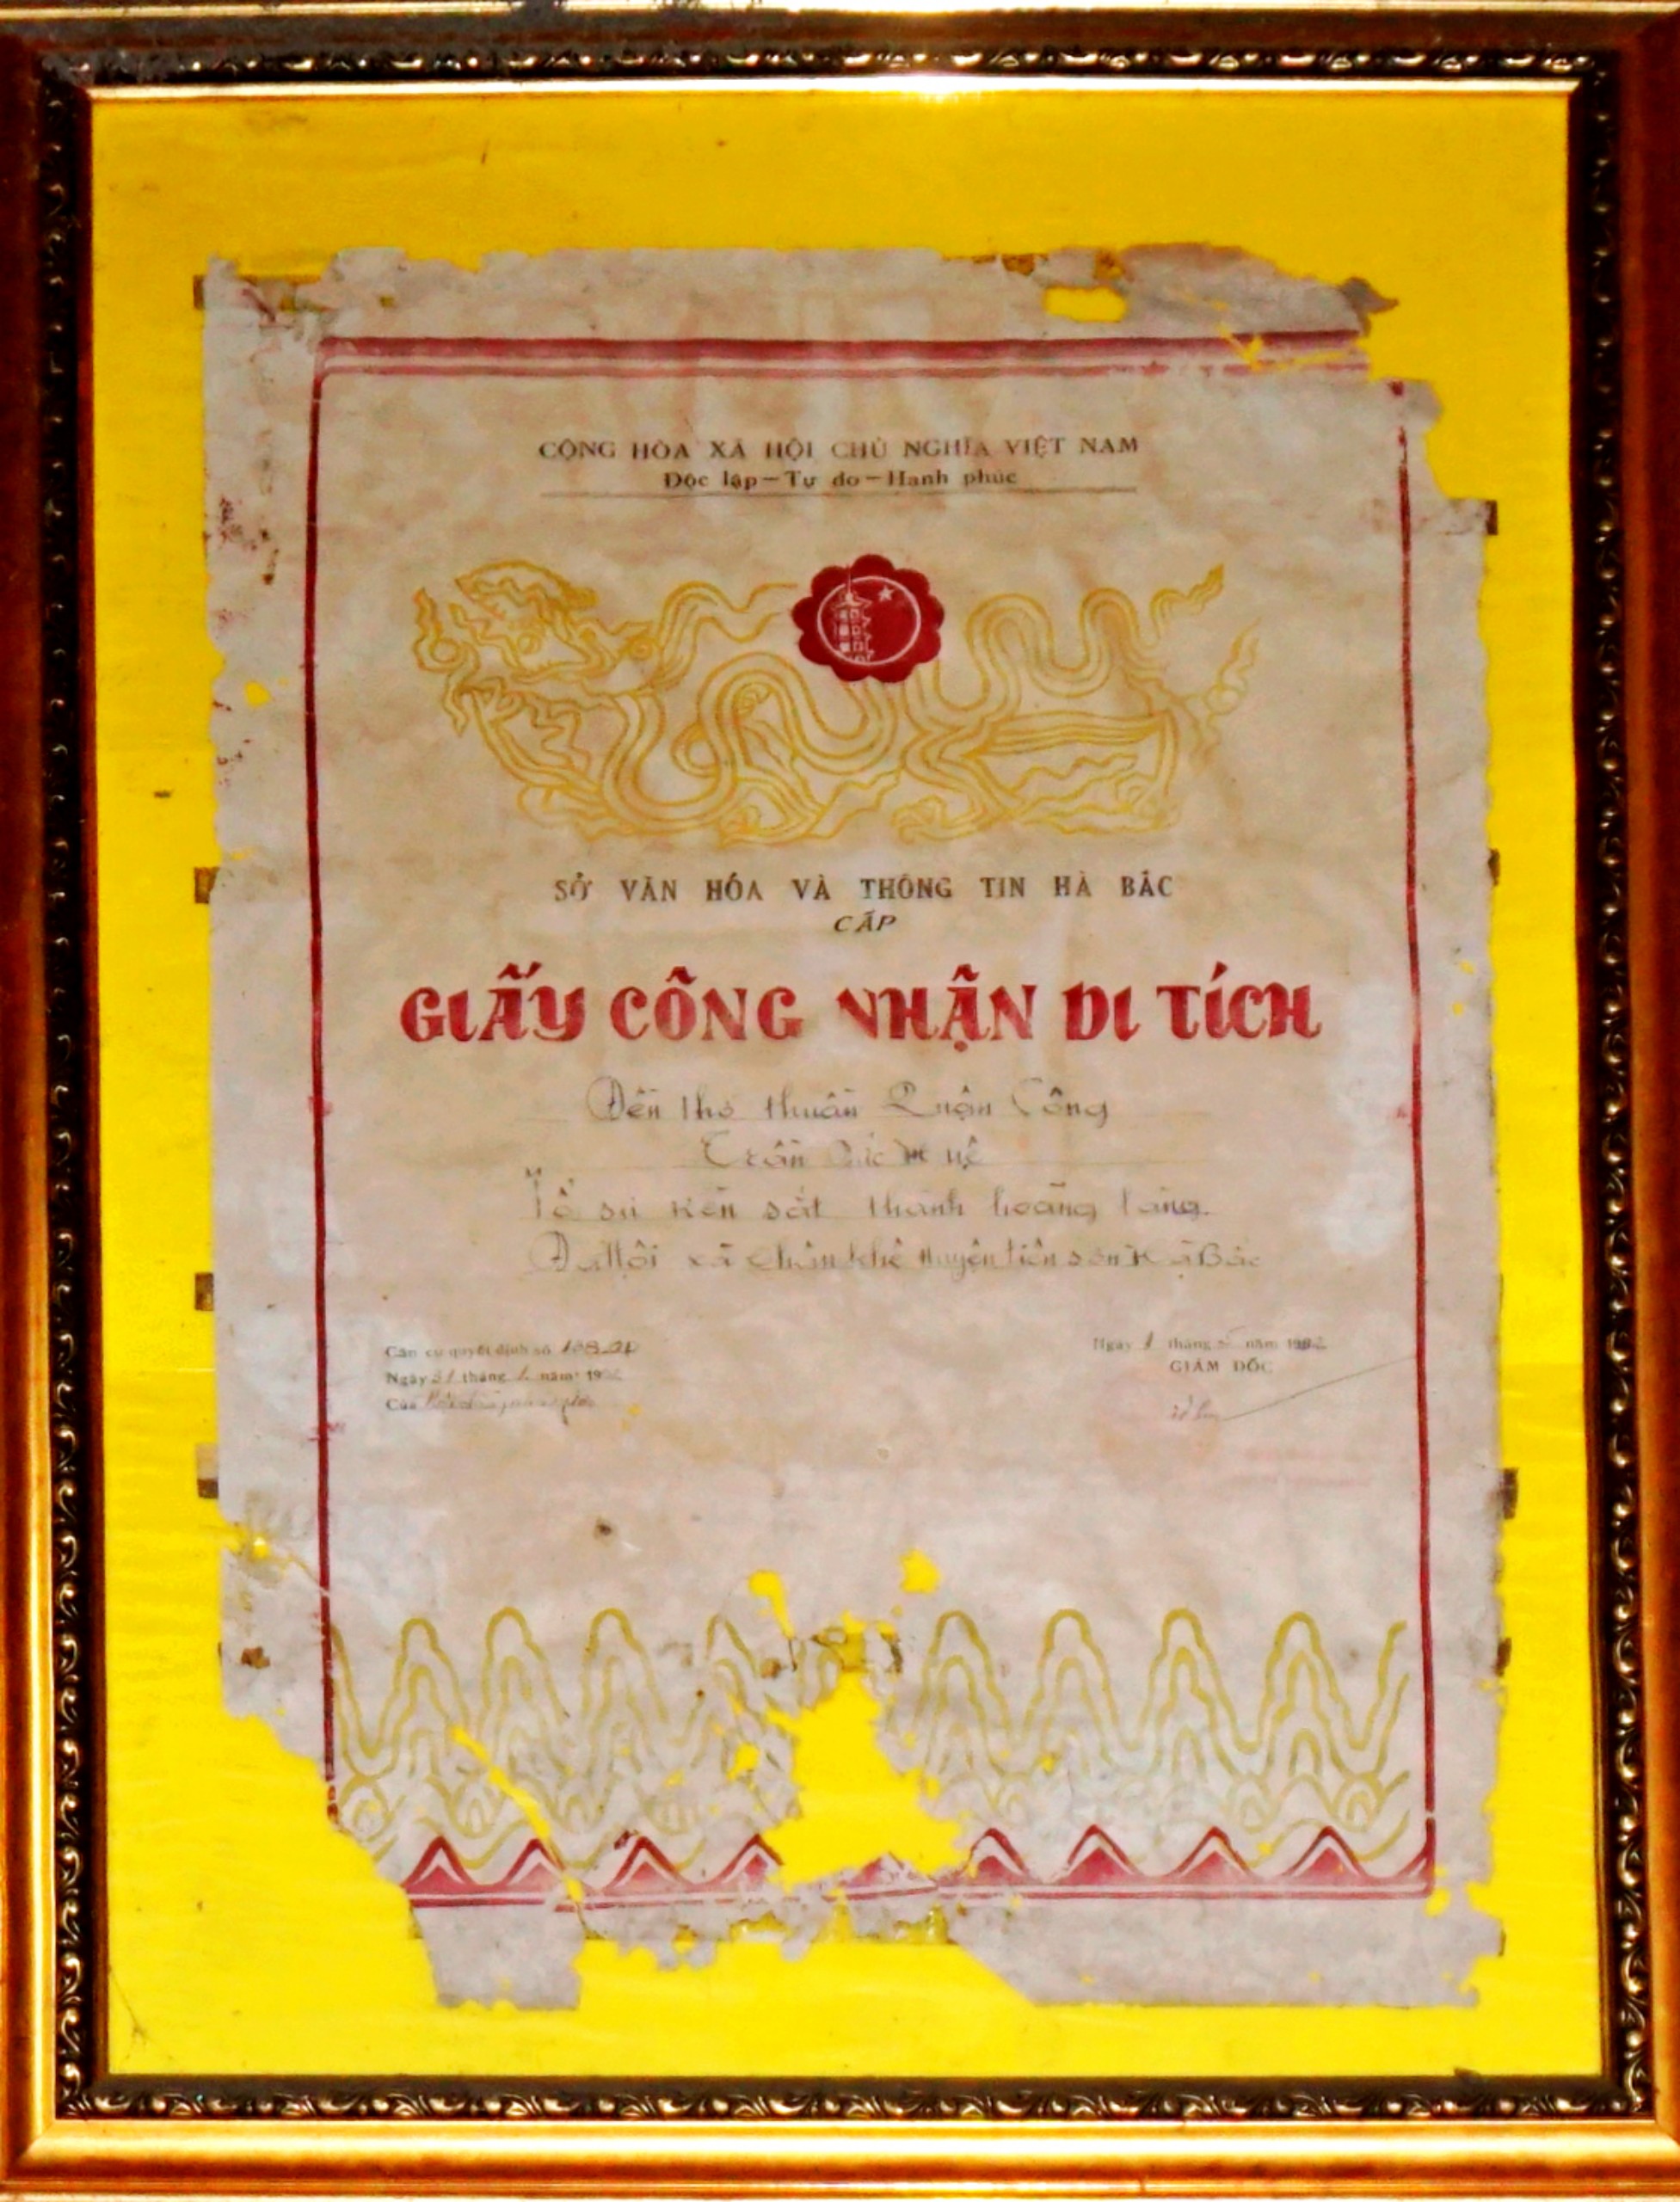 CỘNG HÒA XÃ HỘI CHỦ NGHĨA VIỆT NAM
Độc lập — Tự do — Hạnh phúc
SỞ VĂN HÓA VÀ THÔNG TIN HÀ BẮC
CẤP
GIẤY CÔNG NHẬN DI TÍCH
Đền thờ thuần Quận Công
Trần Đức Huệ
Tổ sư rèn sắt thành hoàng làng.
Đa Hội xã Châu khê Huyện tiên sơn Hà Bắc
Căn cứ quyết định số
Ngày 31 tháng 1 năm 19
Của
Ngày 1 tháng 5 năm 1982
GIÁM ĐỐC